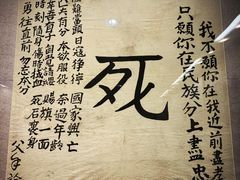 我不願你在我近前盡孝
只願你在民族分上盡忠
死
難當頭 日寇猙獰 國家興亡
夫有分 本欲服役 奈過年齡
幸吾有子 自覺請纓 賜旗一面
時刻隨身 傷時拭血 死后裹身
勇往直前 勿忘本分
父手